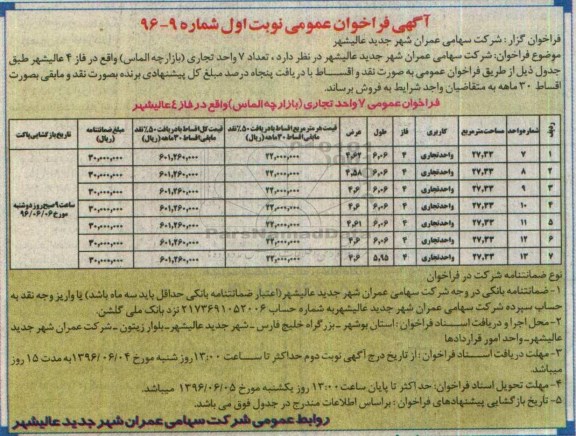 آگهی فراخوان عمومی نوبت اول شماره ۹-۹۶
فراخوان گزار: شرکت سهامی عمران شهر جدید عالیشهر
موضوع فراخوان: شرکت سهامی عمران شهر جدید عالیشهر در نظر دارد، تعداد ۷ واحد تجاری (بازارچه الماس) واقع در فاز ۴ عالیشهر طبق
جدول ذیل از طریق فراخوان عمومی به صورت نقد و اقساط با دریافت پنجاه درصد مبلغ کل پیشنهادی برنده بصورت نقد و مابقی بصورت
اقساط ۳۰ ماهه به متقاضیان واجد شرایط به فروش برساند.
فراخوان عمومی ۷ واحد تجاری (بازارچه الماس) واقع در فاز ٤ عالیشهر
ردیف شماره واحد مساحت مترمربع کاربری فاز طول عرض قیمت هر مترمربع اقساط با دریافت ۵۰٪ نقد مابقی اقساط ۳۰ ماهه (ریال) قیمت کل اقساط با دریافت ۵۰٪ نقد مابقی اقساط ۳۰ ماهه (ریال) مبلغ ضمانتنامه (ریال) تاریخ بازگشایی پاکت
۱ ۷ ۲۷,۳۳ واحدتجاری ۴ ۶,۰۶ ۴,۶۲ ۲۲,۰۰۰,۰۰۰ ۶۰۱,۲۶۰,۰۰۰ ۳۰,۰۰۰,۰۰۰
۲ ۸ ۲۷,۳۳ واحدتجاری ۴ ۶,۰۶ ۴,۵۸ ۲۲,۰۰۰,۰۰۰ ۶۰۱,۲۶۰,۰۰۰ ۳۰,۰۰۰,۰۰۰
۳ ۹ ۲۷,۳۳ واحدتجاری ۴ ۶,۰۶ ۴,۶ ۲۲,۰۰۰,۰۰۰ ۶۰۱,۲۶۰,۰۰۰ ۳۰,۰۰۰,۰۰۰
۴ ۱۰ ۲۷,۳۳ واحدتجاری ۴ ۶,۰۶ ۴,۶ ۲۲,۰۰۰,۰۰۰ ۶۰۱,۲۶۰,۰۰۰ ۳۰,۰۰۰,۰۰۰
۵ ۱۱ ۲۷,۳۳ واحدتجاری ۴ ۶,۰۶ ۴,۶۱ ۲۲,۰۰۰,۰۰۰ ۶۰۱,۲۶۰,۰۰۰ ۳۰,۰۰۰,۰۰۰
۶ ۱۲ ۲۷,۳۳ واحدتجاری ۴ ۶,۰۶ ۴,۶ ۲۲,۰۰۰,۰۰۰ ۶۰۱,۲۶۰,۰۰۰ ۳۰,۰۰۰,۰۰۰
۷ ۱۳ ۲۷,۳۳ واحدتجاری ۴ ۵,۹۵ ۴,۶ ۲۲,۰۰۰,۰۰۰ ۶۰۱,۲۶۰,۰۰۰ ۳۰,۰۰۰,۰۰۰
ساعت ۹ صبح روز دوشنبه
مورخ ۹۶/۰۶/۰۶
نوع ضمانتنامه شرکت در فراخوان
۱- ضمانتنامه بانکی در وجه شرکت سهامی عمران شهر جدید عالیشهر (اعتبار ضمانتنامه بانکی حداقل باید سه ماه باشد) یا واریز وجه نقد به
حساب سپرده شرکت سهامی عمران شهر جدید عالیشهر به شماره حساب ۲۱۷۳۶۹۱۰۵۲۰۰۶ نزد بانک ملی گلشن.
۲- محل اجرا و دریافت اسناد فراخوان: استان بوشهر - بزرگراه خلیج فارس - شهر جدید عالیشهر - بلوار زیتون - شرکت عمران شهر جدید
عالیشهر - واحد امور قراردادها
۳- مهلت دریافت اسناد فراخوان: از تاریخ درج آگهی نوبت دوم حداکثر تا ساعت ۱۳:۰۰ روز شنبه مورخ ۱۳۹۶/۰۶/۰۴ به مدت ۱۵ روز
میباشد.
۴- مهلت تحویل اسناد فراخوان: حداکثر تا پایان ساعت ۱۳:۰۰ روز یکشنبه مورخ ۱۳۹۶/۰۶/۰۵ میباشد.
۵- تاریخ بازگشایی پیشنهادهای فراخوان: براساس اطلاعات مندرج در جدول فوق می باشد.
روابط عمومی شرکت سهامی عمران شهر جدید عالیشهر